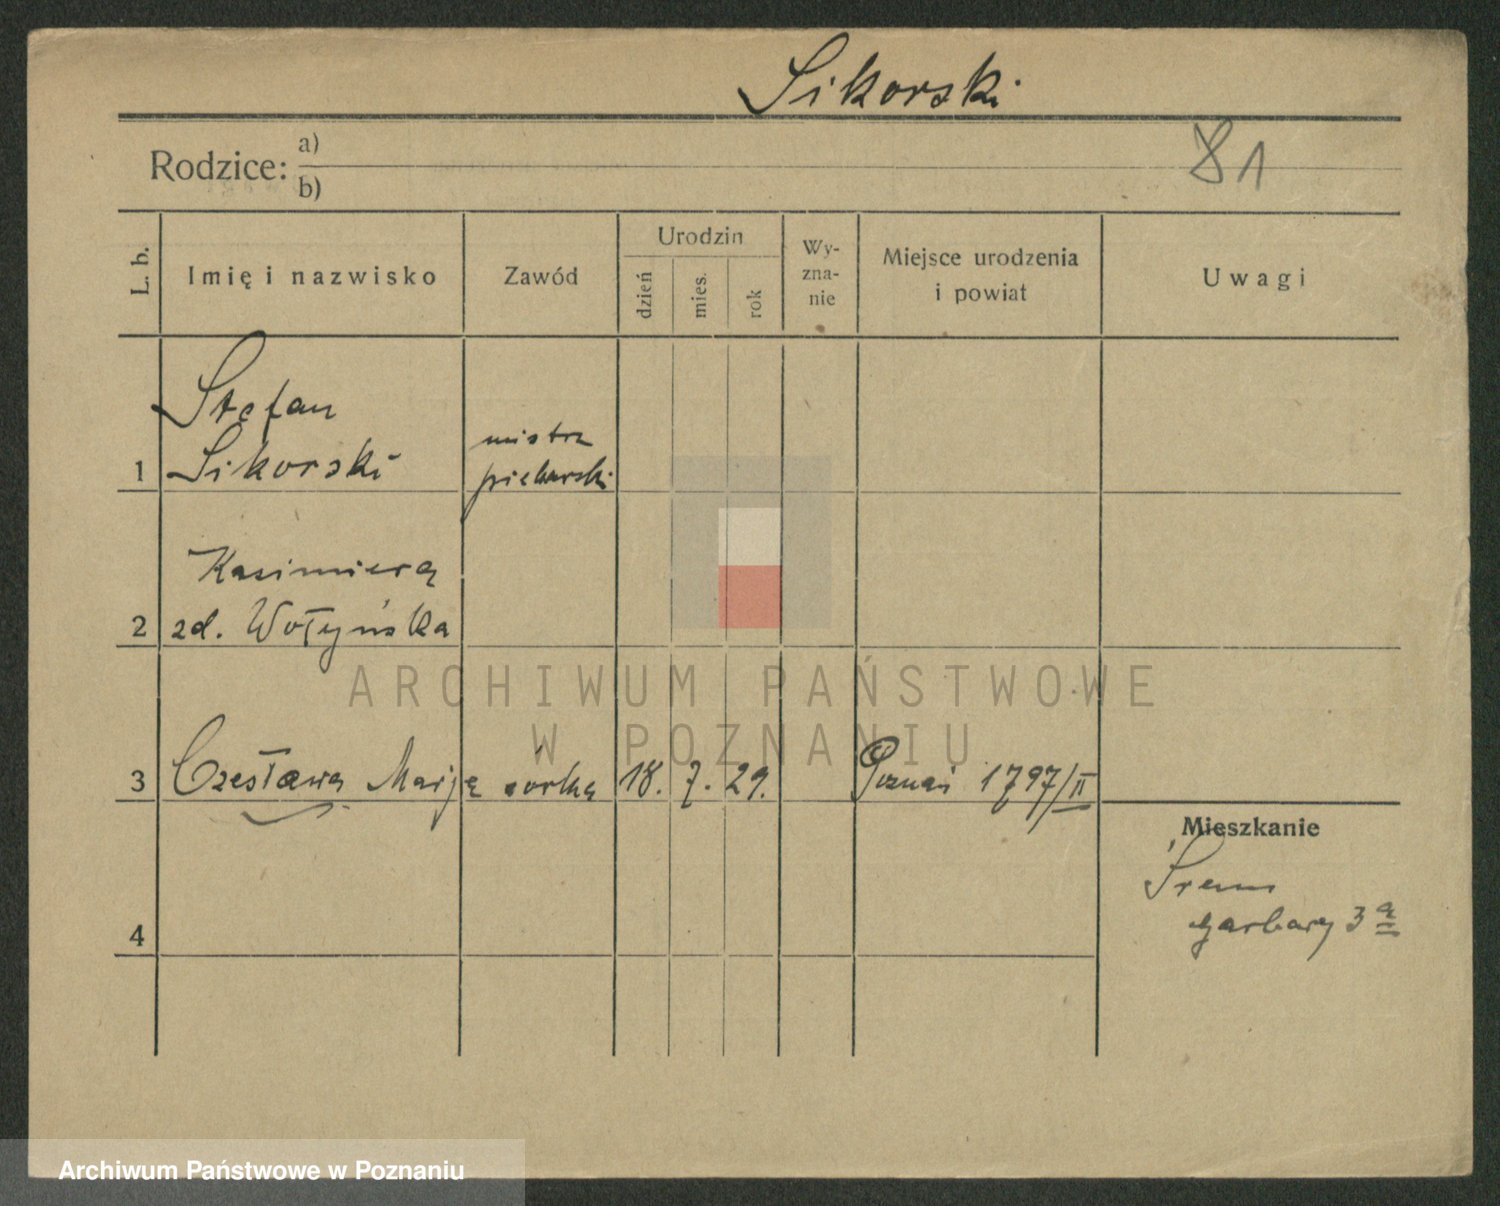 Sikorski
81
Rodzice: a)
b)
L. b.
Imię i nazwisko
Zawód
Urodzin
dzień
mies.
rok
Wy-
zna-
nie
Miejsce urodzenia
i powiat
Uwagi
Stefan
1 Sikorski
mistrz
piekarski
Kazimiera
2 zd. Wołyńska
ARCHIWUM PAŃSTWOWE
W POZNANIU
3 Czesława Marja córka 18. 7. 29. Poznań 1797/II
Mieszkanie
Śrem
garbary 3 a
4
Archiwum Państwowe w Poznaniu